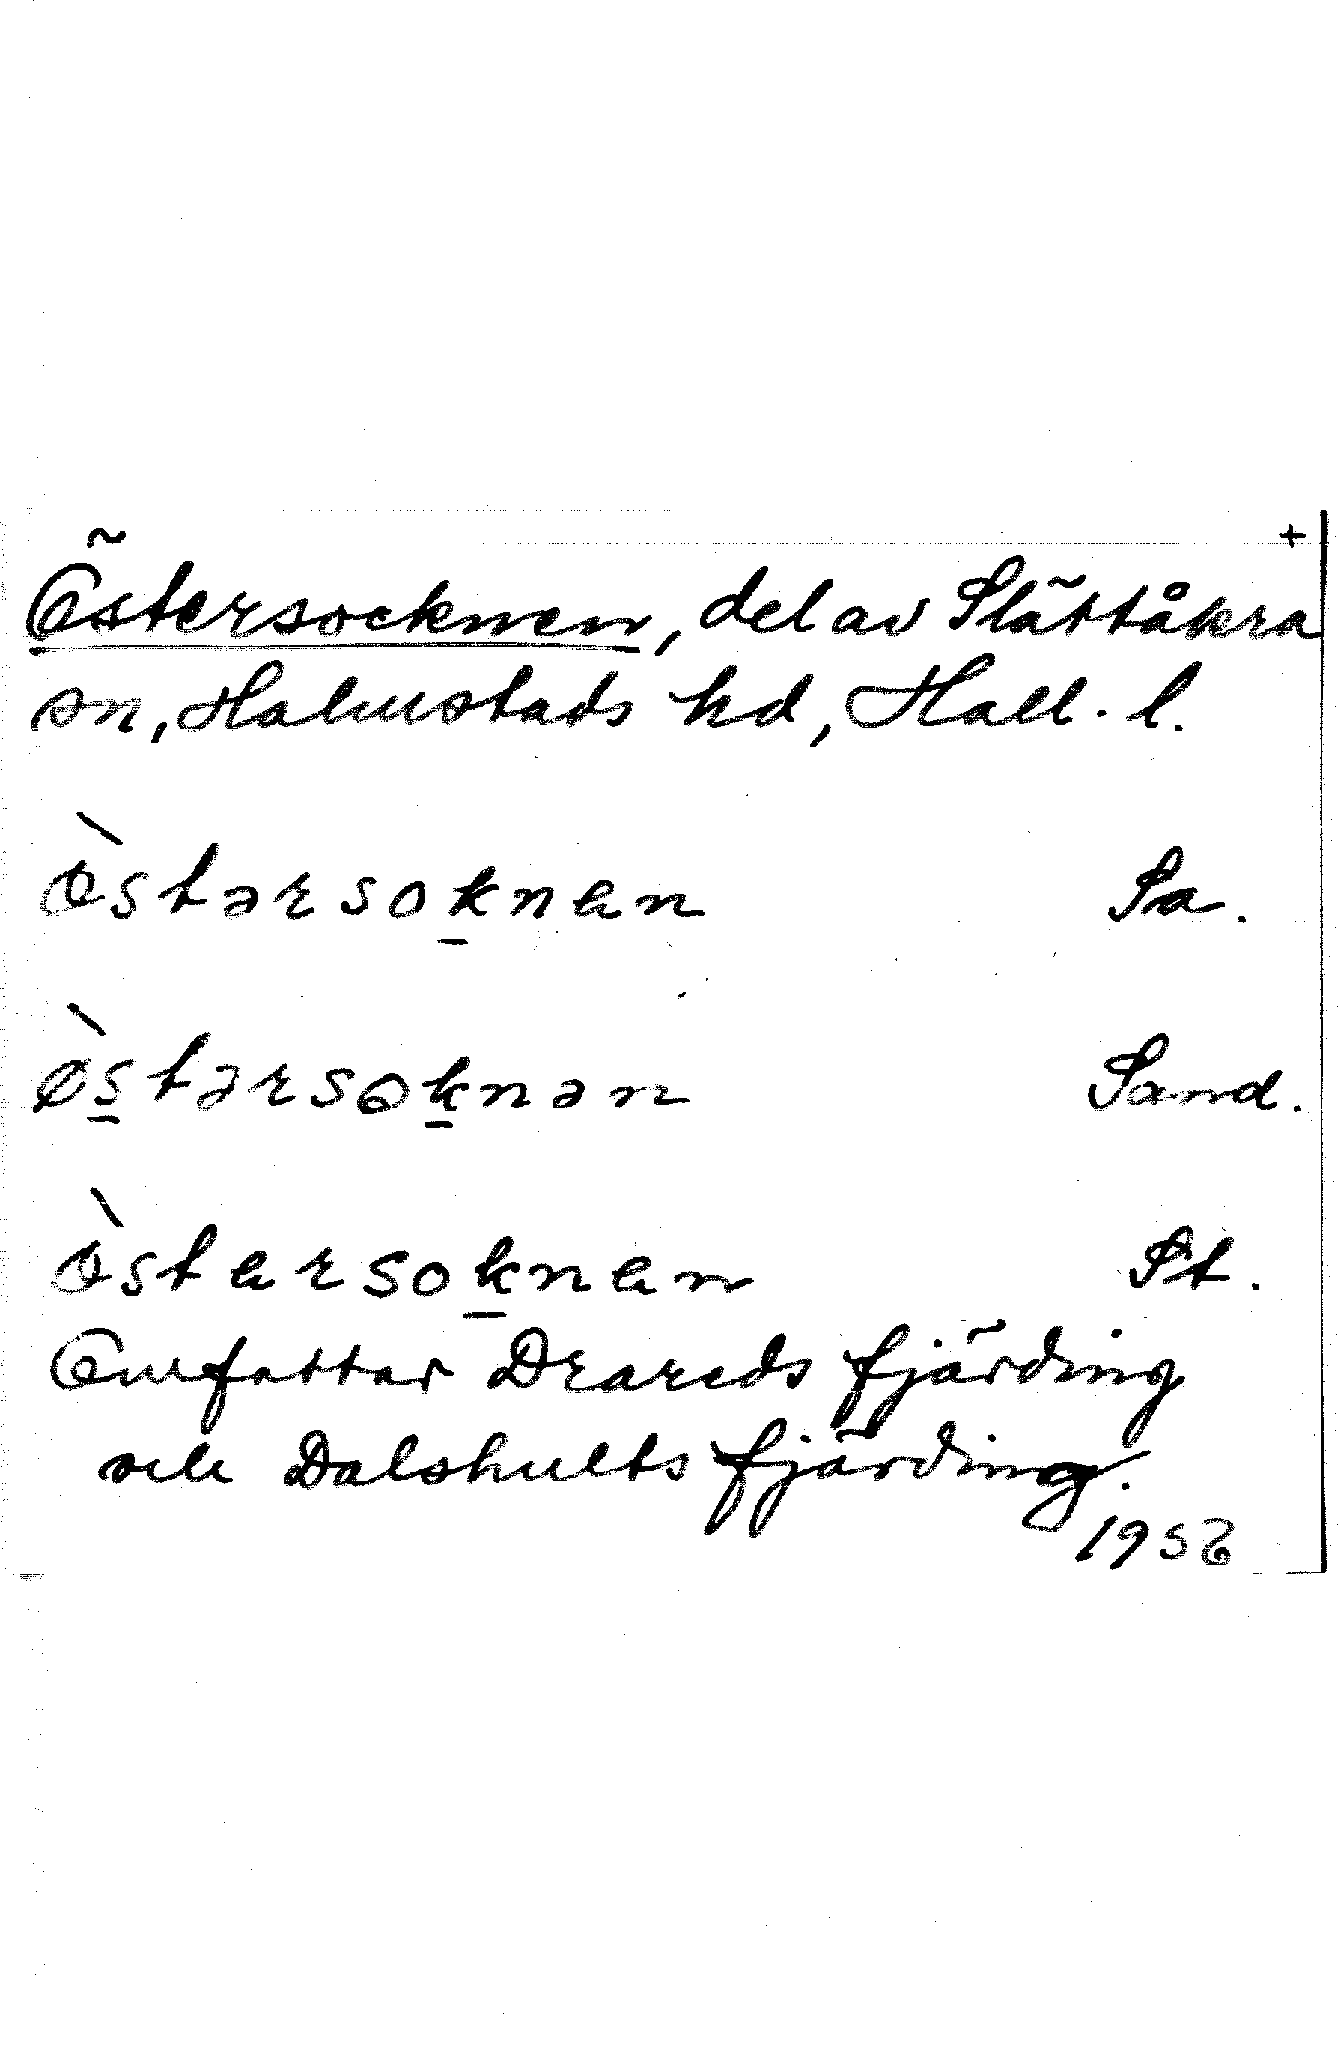 +
Östersocknen, del av Slättåkra
sn, Halmstads hd, Hall. l.
ø̀stərsok̲nen Sa.
ø̀s̲tərsok̲nən Sand.
ø̀stersok̲nen St.
Omfattar Drareds fjärding
och Dalshults fjärding.
1952